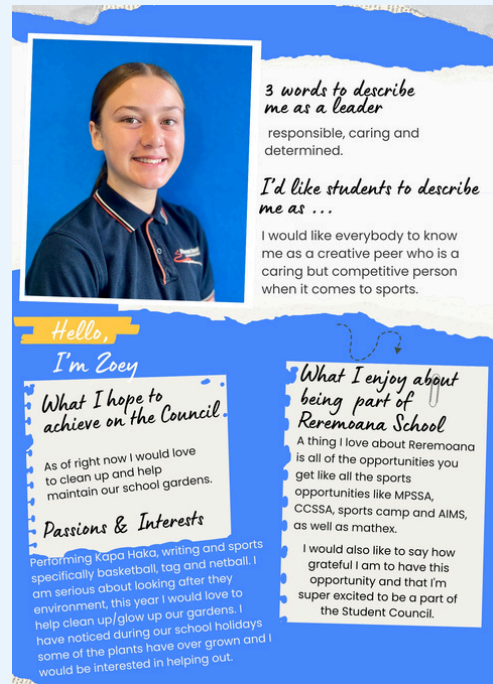 3 words to describe
me as a leader
responsible, caring and
determined.
I'd like students to describe
me as ...
I would like everybody to know
me as a creative peer who is a
caring but competitive person
when it comes to sports.
Hello,
I'm Zoey
What I hope to
achieve on the Council.
As of right now I would love
to clean up and help
maintain our school gardens.
Passions & Interests
Performing Kapa Haka, writing and sports
specifically basketball, tag and netball. I
am serious about looking after they
environment, this year I would love to
help clean up/glow up our gardens. I
have noticed during our school holidays
some of the plants have over grown and I
would be interested in helping out.
What I enjoy about
being part of
Reremoana School
A thing I love about Reremoana
is all of the opportunities you
get like all the sports
opportunities like MPSSA,
CCSSA, sports camp and AIMS,
as well as mathex.
I would also like to say how
grateful I am to have this
opportunity and that I'm
super excited to be a part of
the Student Council.